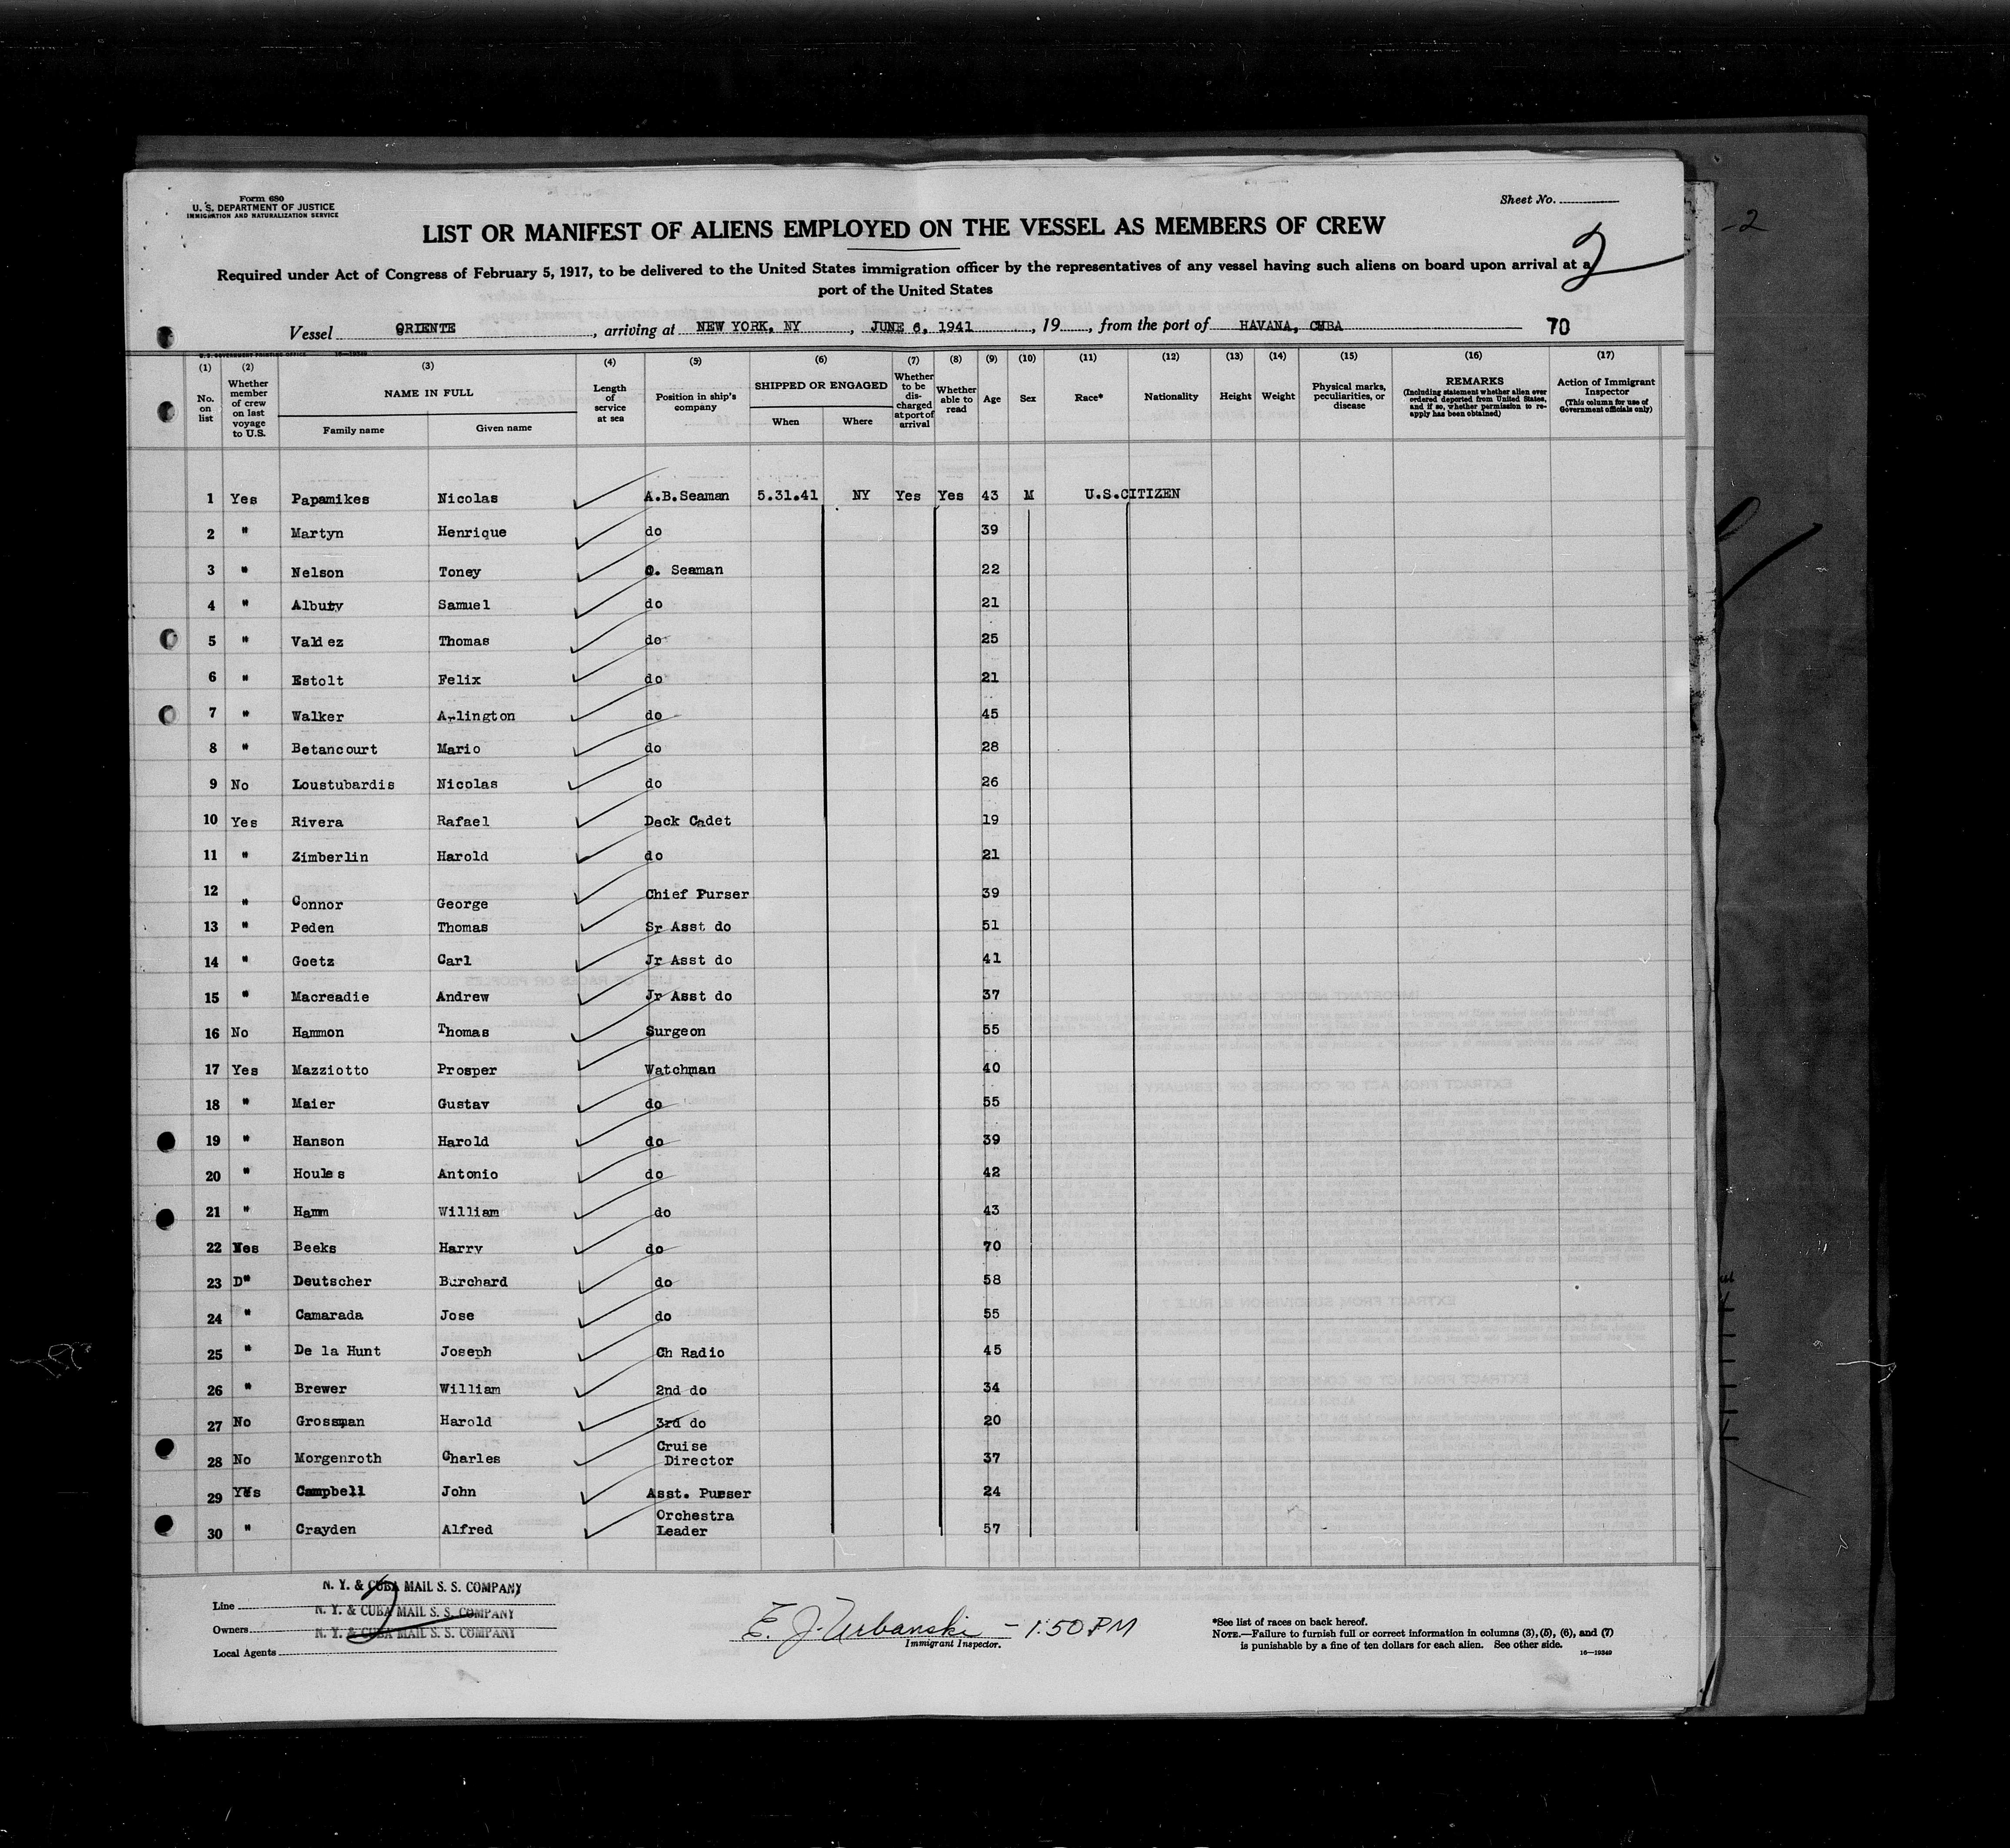 Form 680
U. S. DEPARTMENT OF JUSTICE
IMMIGRATION AND NATURALIZATION SERVICE
Sheet No.
2
LIST OR MANIFEST OF ALIENS EMPLOYED ON THE VESSEL AS MEMBERS OF CREW
Required under Act of Congress of February 5, 1917, to be delivered to the United States immigration officer by the representatives of any vessel having such aliens on board upon arrival at a
port of the United States
Vessel ORIENTE, arriving at NEW YORK, NY, JUNE 6, 1941, 19, from the port of HAVANA, CUBA 70
U. S. GOVERNMENT PRINTING OFFICE 16—19349
(1) (2) (3) (4) (5) (6) (7) (8) (9) (10) (11) (12) (13) (14) (15) (16) (17)
No. on list
Whether member of crew on last voyage to U.S.
NAME IN FULL
Family name
Given name
Length of service at sea
Position in ship's company
SHIPPED OR ENGAGED
When
Where
Whether to be discharged at port of arrival
Whether able to read
Age
Sex
Race*
Nationality
Height
Weight
Physical marks, peculiarities, or disease
REMARKS
(Including statement whether alien ever ordered deported from United States, and if so, whether permission to reapply has been obtained)
Action of Immigrant Inspector
(This column for use of Government officials only)
1 Yes Papamikes Nicolas A.B.Seaman 5.31.41 NY Yes Yes 43 M U.S.CITIZEN
2 " Martyn Henrique do 39
3 " Nelson Toney O. Seaman 22
4 " Albuty Samuel do 21
5 " Valdez Thomas do 25
6 " Estolt Felix do 21
7 " Walker Arlington do 45
8 " Betancourt Mario do 28
9 No Loustubardis Nicolas do 26
10 Yes Rivera Rafael Deck Cadet 19
11 " Zimberlin Harold do 21
12 " Connor George Chief Purser 39
13 " Peden Thomas Sr Asst do 51
14 " Goetz Carl Jr Asst do 41
15 " Macreadie Andrew Jr Asst do 37
16 No Hammon Thomas Surgeon 55
17 Yes Mazziotto Prosper Watchman 40
18 " Maier Gustav do 55
19 " Hanson Harold do 39
20 " Houles Antonio do 42
21 " Hamm William do 43
22 Yes Beeks Harry do 70
23 D" Deutscher Burchard do 58
24 " Camarada Jose do 55
25 " De la Hunt Joseph Ch Radio 45
26 " Brewer William 2nd do 34
27 No Grossman Harold 3rd do 20
28 No Morgenroth Charles Cruise Director 37
29 Yes Campbell John Asst. Purser 24
30 " Crayden Alfred Orchestra Leader 57
N. Y. & CUBA MAIL S. S. COMPANY
Line N. Y. & CUBA MAIL S. S. COMPANY
Owners N. Y. & CUBA MAIL S. S. COMPANY
Local Agents
2
E. J. Urbanski – 1:50 PM
Immigrant Inspector.
*See list of races on back hereof.
NOTE.—Failure to furnish full or correct information in columns (3), (5), (6), and (7)
is punishable by a fine of ten dollars for each alien. See other side.
16—19349
-2